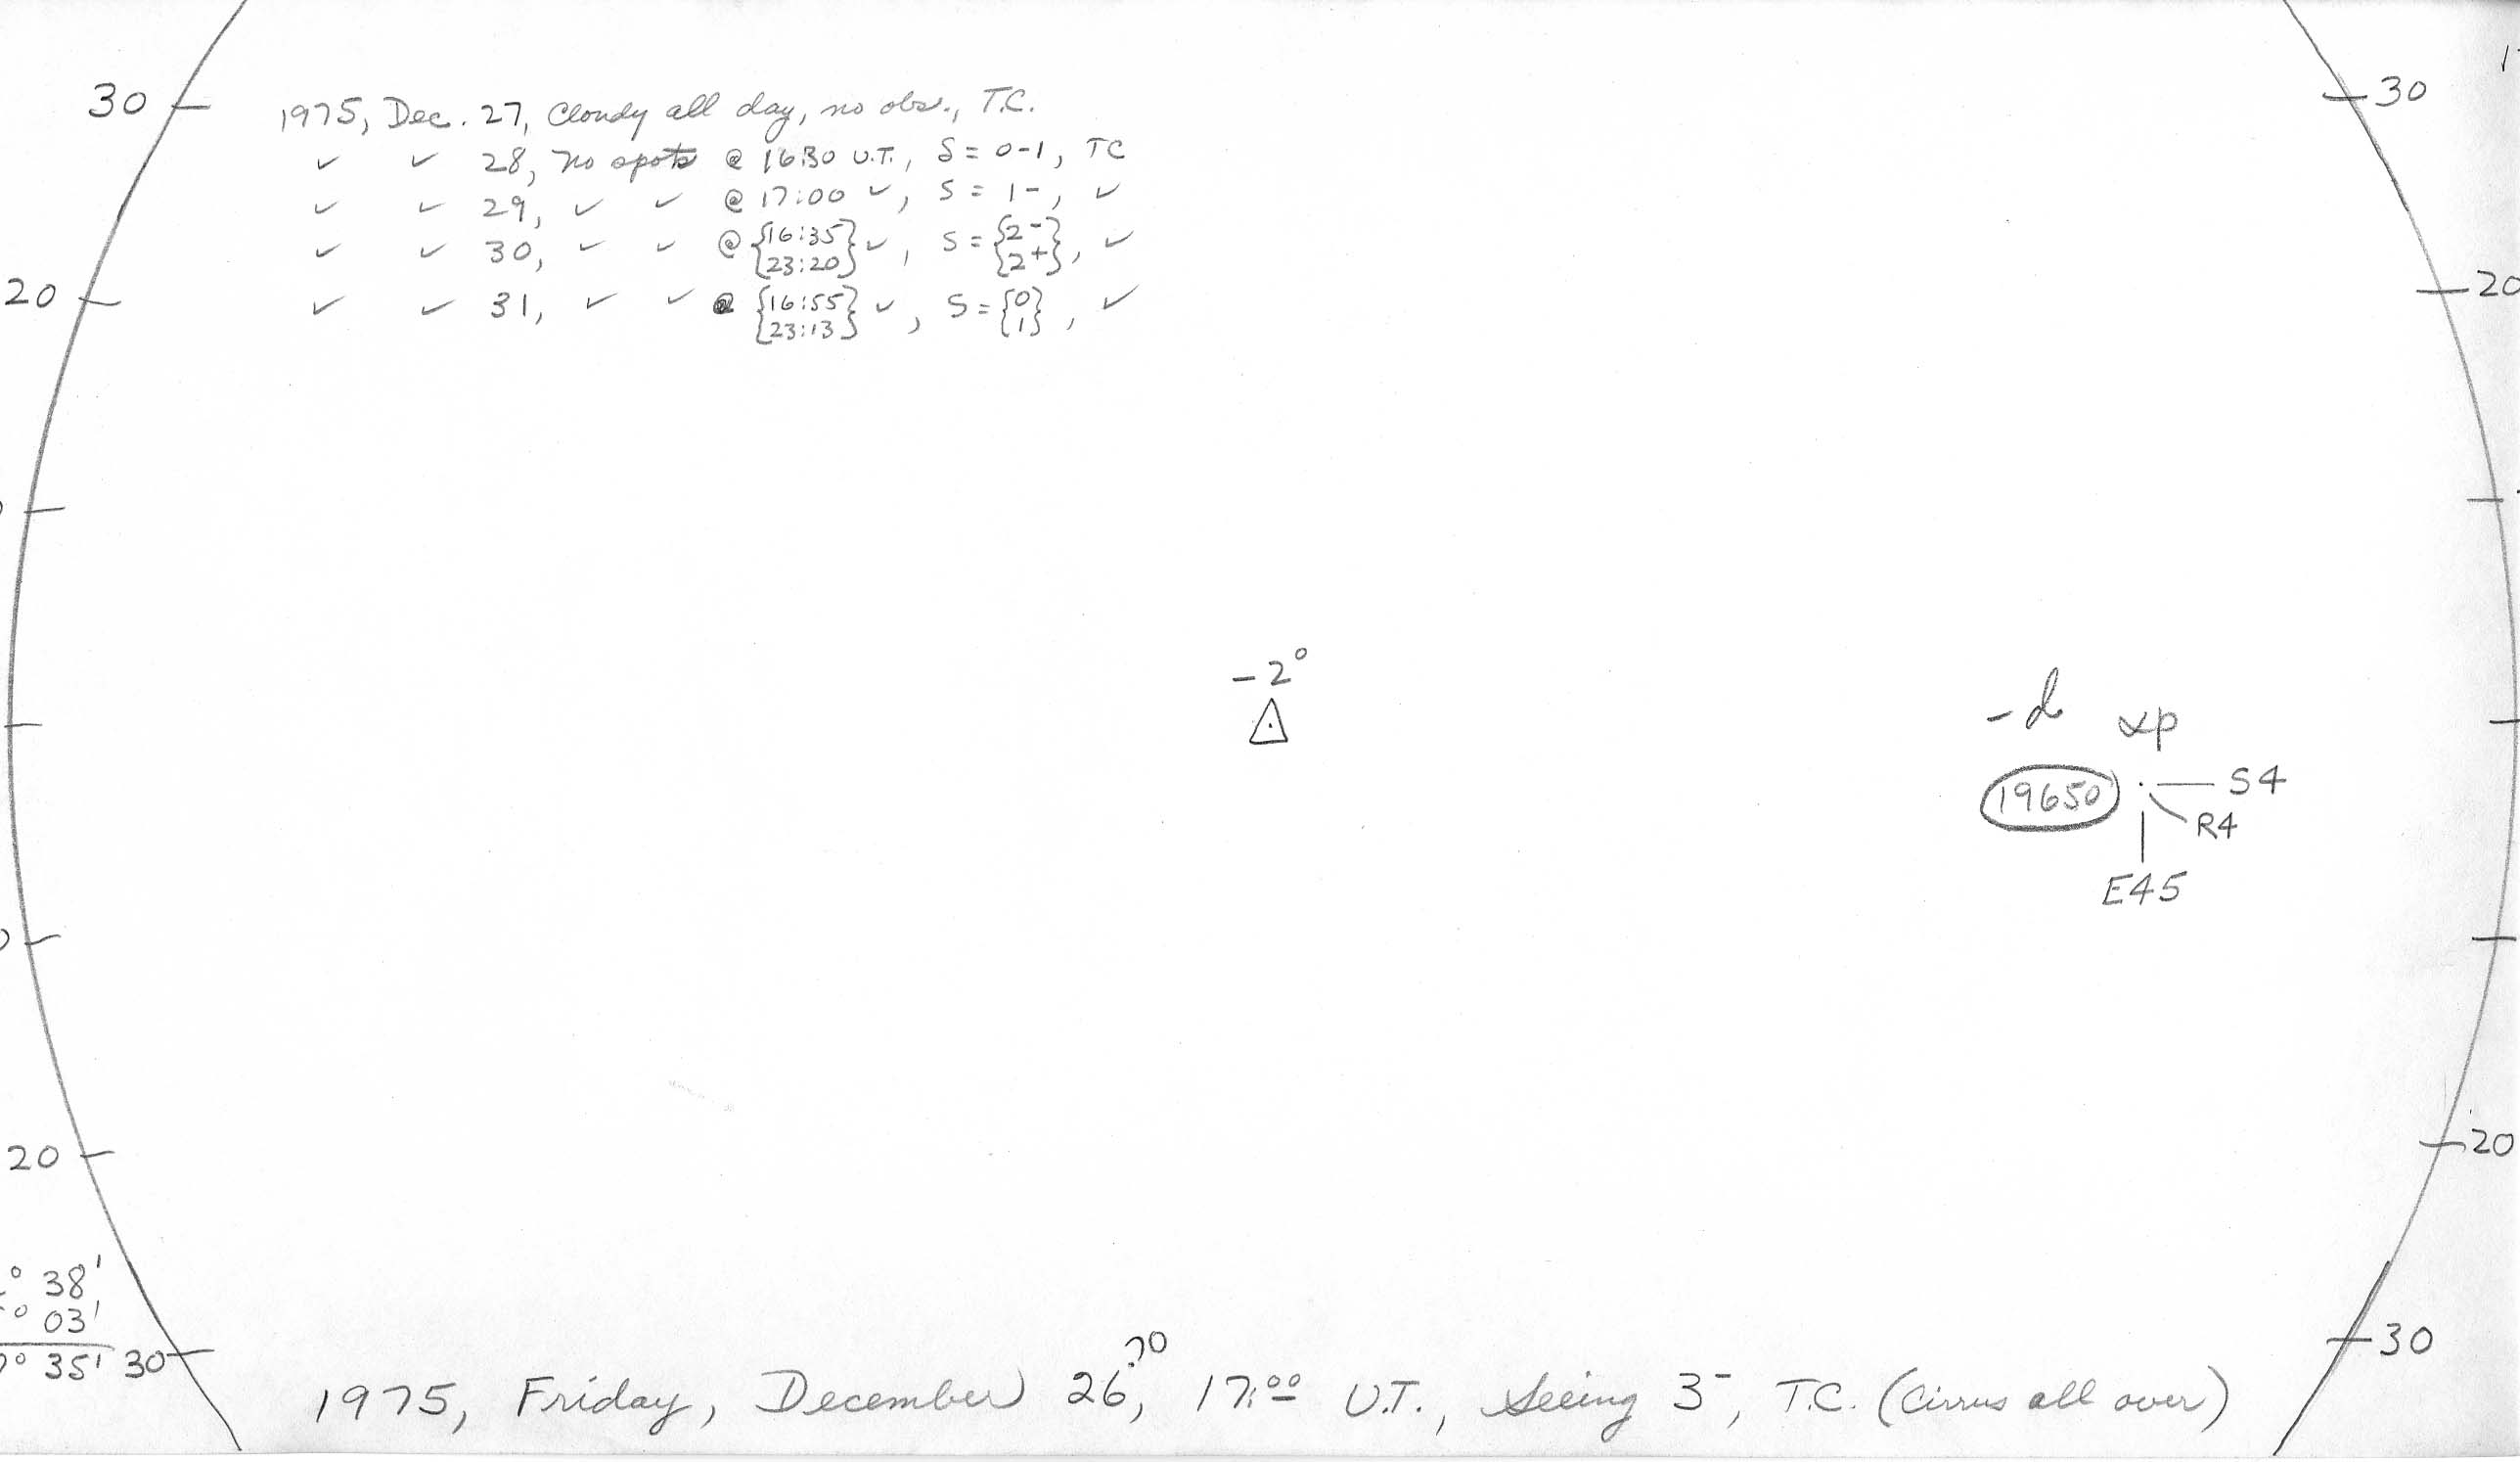 30
30
1975, Dec. 27, Cloudy all day, no obs., T.C.
✓ ✓ 28, No spots @ 16:30 U.T., S = 0-1, TC
✓ ✓ 29, ✓ ✓ @ 17:00 ✓, S = 1-, ✓
✓ ✓ 30, ✓ ✓ @ {16:35 23:20} ✓, S = {2- 2+}, ✓
20
20
✓ ✓ 31, ✓ ✓ @ {16:55 23:13} ✓, S = {0 1}, ✓
-2°
△
-d αp
19650 S4
R4
E45
20
20
° 38'
° 03'
° 35' 30
30
.70
1975, Friday, December 26, 17:00 U.T., Seeing 3-, T.C. (Cirrus all over)